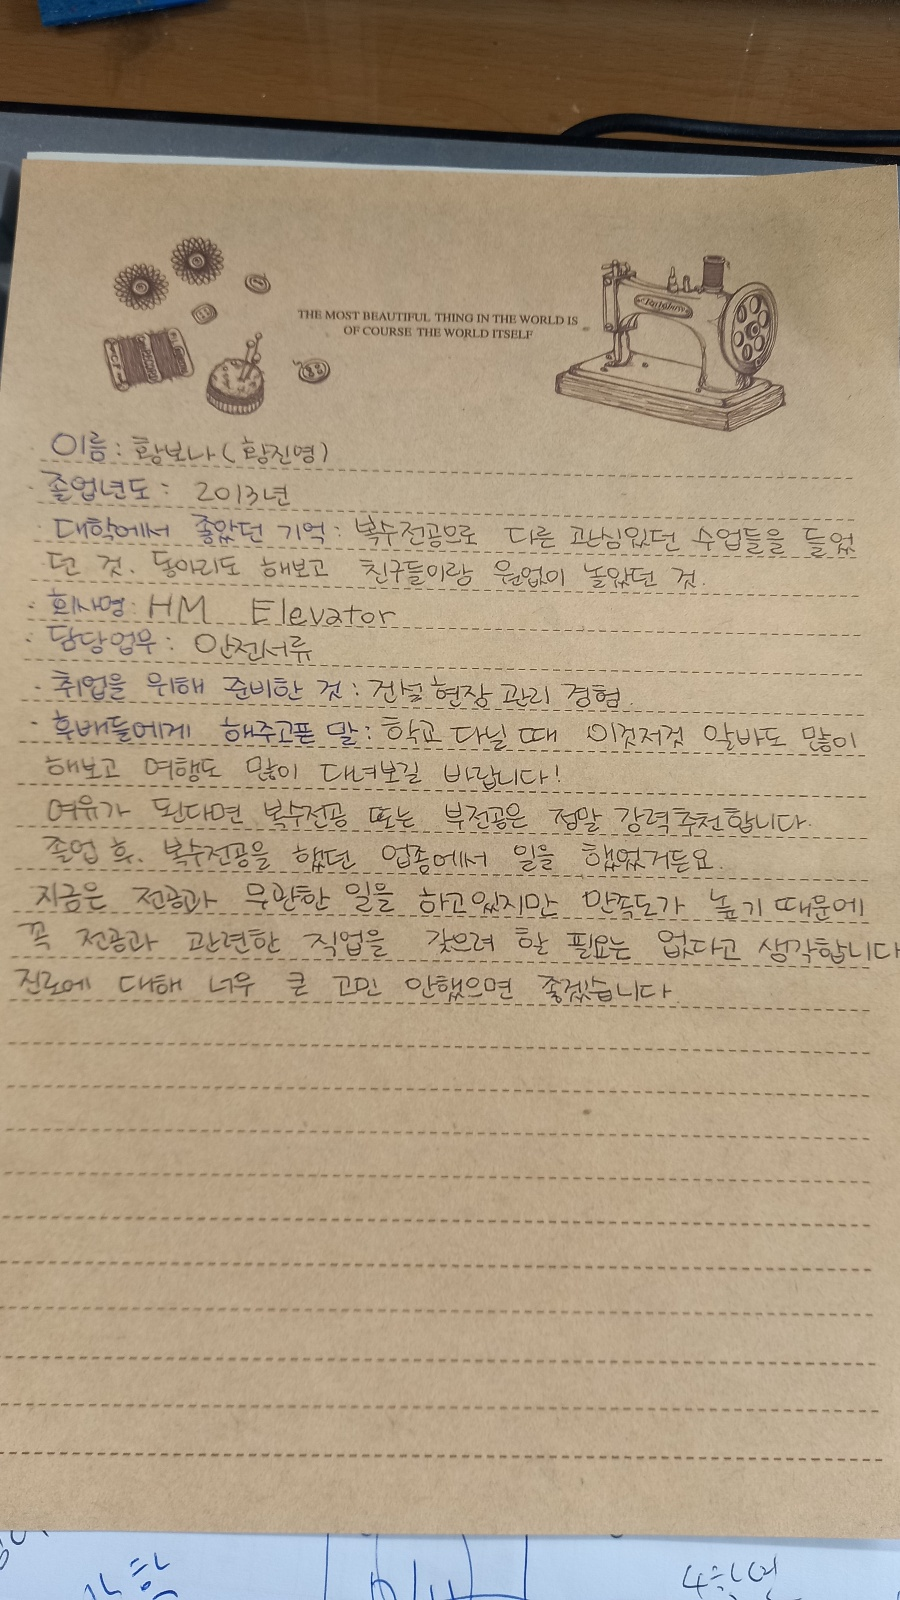 THE MOST BEAUTIFUL THING IN THE WORLD IS
OF COURSE THE WORLD ITSELF
Rainbow
· 이름: 황보나 (황진영)
· 졸업년도: 2013년
· 대학에서 좋았던 기억: 복수전공으로 다른 관심있던 수업들을 들었
던 것. 동아리도 해보고 친구들이랑 원없이 놀았던 것.
· 회사명: HM Elevator
· 담당업무: 안전서류
· 취업을 위해 준비한 것: 건설현장 관리 경험.
· 후배들에게 해주고픈 말: 학교 다닐 때 이것저것 알바도 많이
해보고 여행도 많이 다녀보길 바랍니다!
여유가 된다면 복수전공 또는 부전공은 정말 강력추천합니다.
졸업 후. 복수전공을 했던 업종에서 일을 했었거든요.
지금은 전공과 무관한 일을 하고있지만 만족도가 높기 때문에
꼭 전공과 관련한 직업을 갖으려 할 필요는 없다고 생각합니다
진로에 대해 너무 큰 고민 안했으면 좋겠습니다.